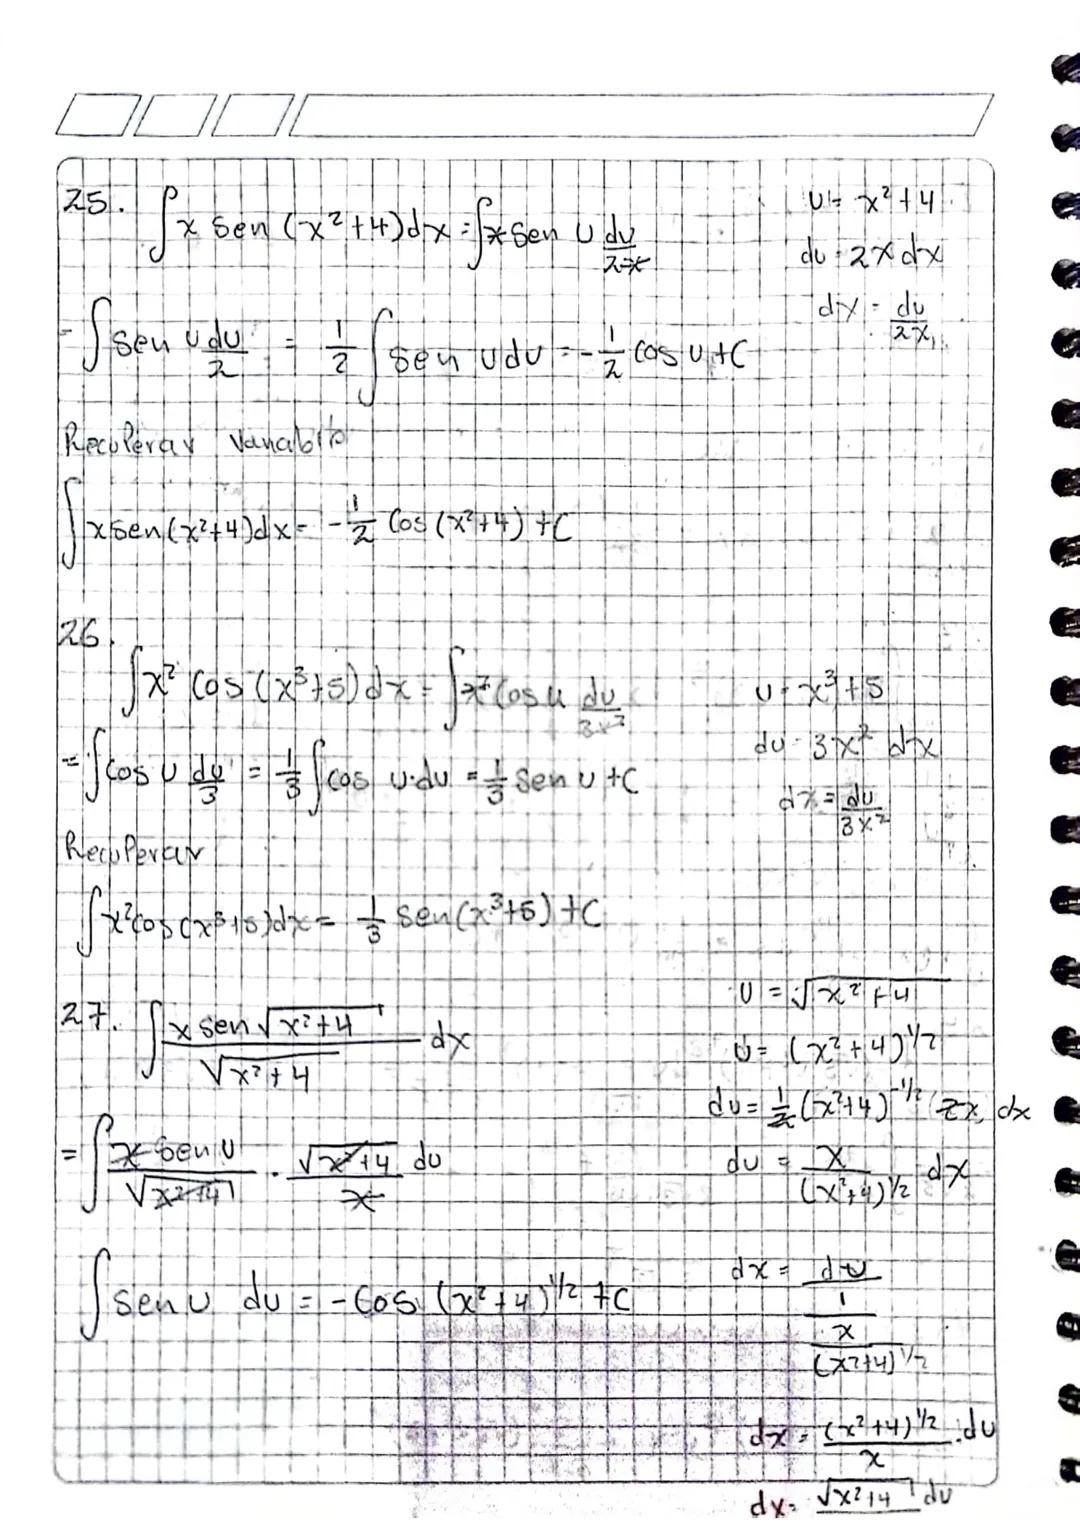 25. ∫ x sen (x²+4)dx = ∫ x sen u du/2x
u = x²+4
du = 2x dx
dx = du/2x
= ∫ sen u du/2 = 1/2 ∫ sen u du = -1/2 cos u + C
Recuperar Variable
∫ x sen (x²+4)dx = -1/2 Cos (x²+4) + C
26.
∫ x² Cos (x³+5) dx = ∫ x² Cos u du/3x²
u = x³+5
du = 3x² dx
dx = du/3x²
= ∫ cos u du/3 = 1/3 ∫ cos u·du = 1/3 Sen u + C
Recuperar
∫ x² cos (x³+5)dx = 1/3 Sen (x³+5) + C
27. ∫ x sen √x²+4 / √x²+4 dx
u = √x²+4
u = (x²+4)^1/2
du = 1/2 (x²+4)^-1/2 (2x, dx
= ∫ x sen u / √x²+4 · √x²+4 / x du
du = x / (x²+4)^1/2 dx
∫ sen u du = -Cos (x²+4)^1/2 + C
dx = du / 1 / x / (x²+4)^1/2
dx = (x²+4)^1/2 / x · du
dx = √x²+4 du